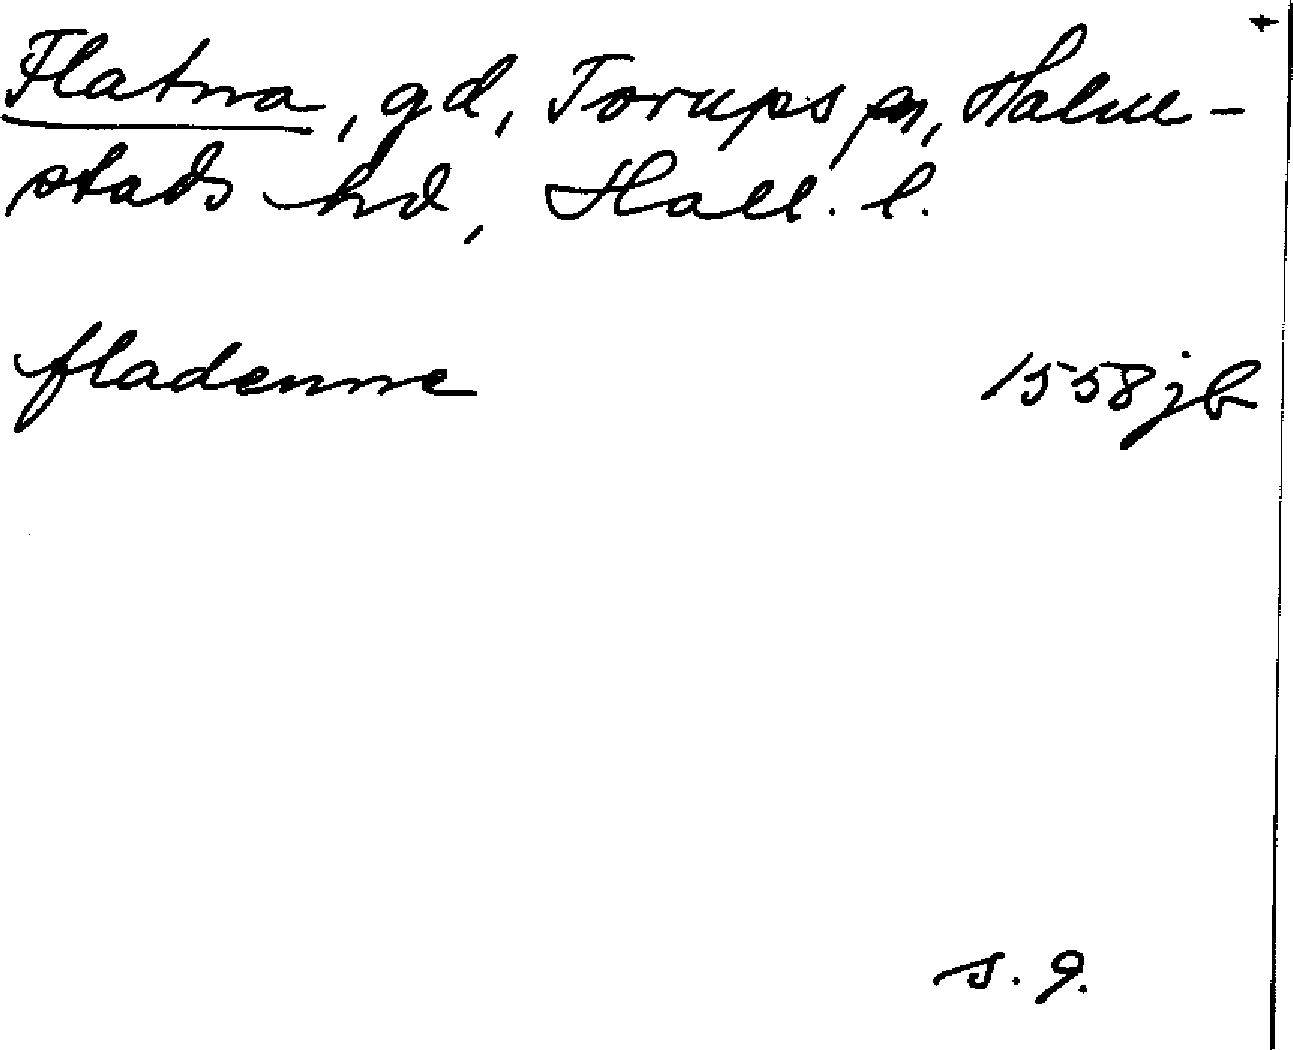 Flatna, gd, Torups sn, Halm-
stads hd, Hall. l.
fladenne 1558 jb
s. 9.